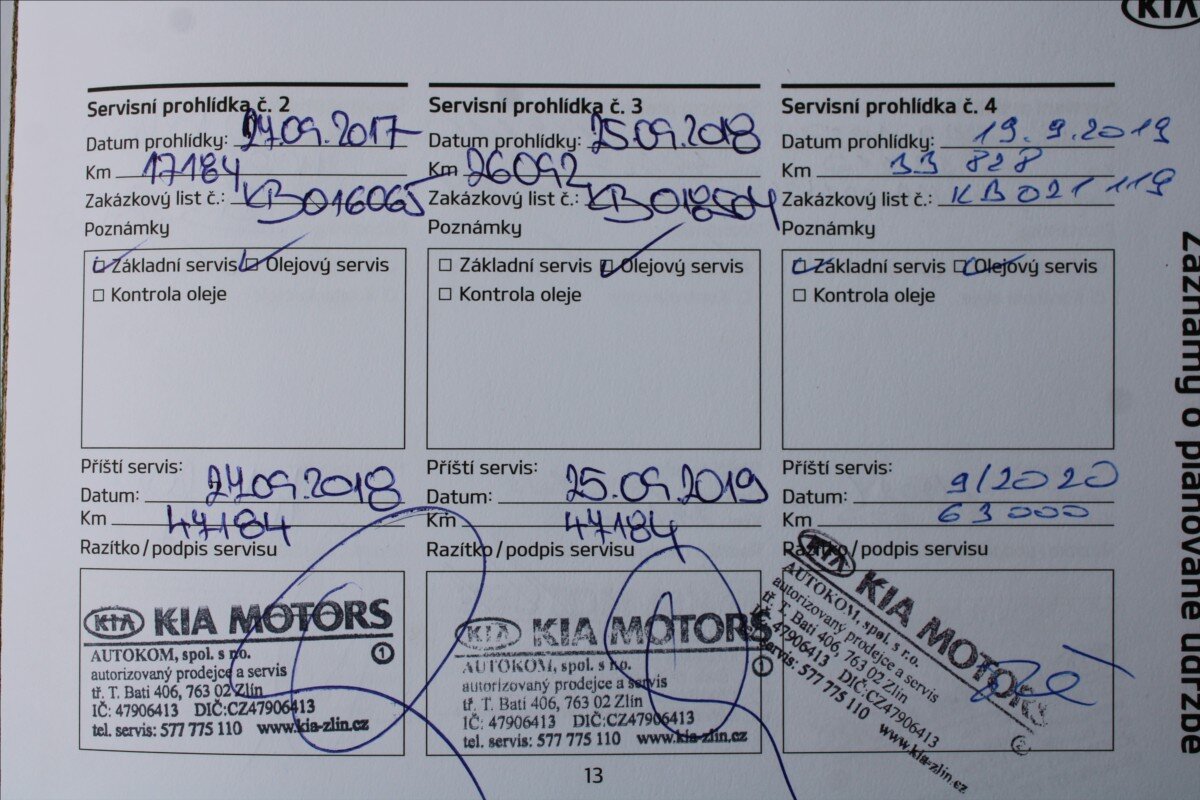 KIA
Servisní prohlídka č. 2
Datum prohlídky: 27.09.2017
Km 17184
Zakázkový list č.: KB016065
Poznámky
Základní servis Olejový servis
Kontrola oleje
Příští servis:
Datum: 27.09.2018
Km 47184
Razítko/podpis servisu
KIA KIA MOTORS
AUTOKOM, spol. s r.o. 1
autorizovaný prodejce a servis
tř. T. Bati 406, 763 02 Zlín
IČ: 47906413 DIČ:CZ47906413
tel. servis: 577 775 110 www.kia-zlin.cz
Servisní prohlídka č. 3
Datum prohlídky: 25.09.2018
Km 26092
Zakázkový list č.: KB018504
Poznámky
Základní servis Olejový servis
Kontrola oleje
Příští servis:
Datum: 25.09.2019
Km 47184
Razítko/podpis servisu
KIA KIA MOTORS
AUTOKOM, spol. s r.o.
autorizovaný prodejce a servis
tř. T. Bati 406, 763 02 Zlín
IČ: 47906413 DIČ:CZ47906413
tel. servis: 577 775 110 www.kia-zlin.cz
Servisní prohlídka č. 4
Datum prohlídky: 19.9.2019
Km 33 828
Zakázkový list č.: KB021119
Poznámky
Základní servis Olejový servis
Kontrola oleje
Příští servis:
Datum: 9/2020
Km 63000
Razítko/podpis servisu
KIA KIA MOTORS
AUTOKOM, spol. s r.o.
autorizovaný prodejce a servis
tř. T. Bati 406, 763 02 Zlín
IČ: 47906413 DIČ:CZ47906413
servis: 577 775 110 www.kia-zlin.cz
13
Záznamy o plánované údržbě